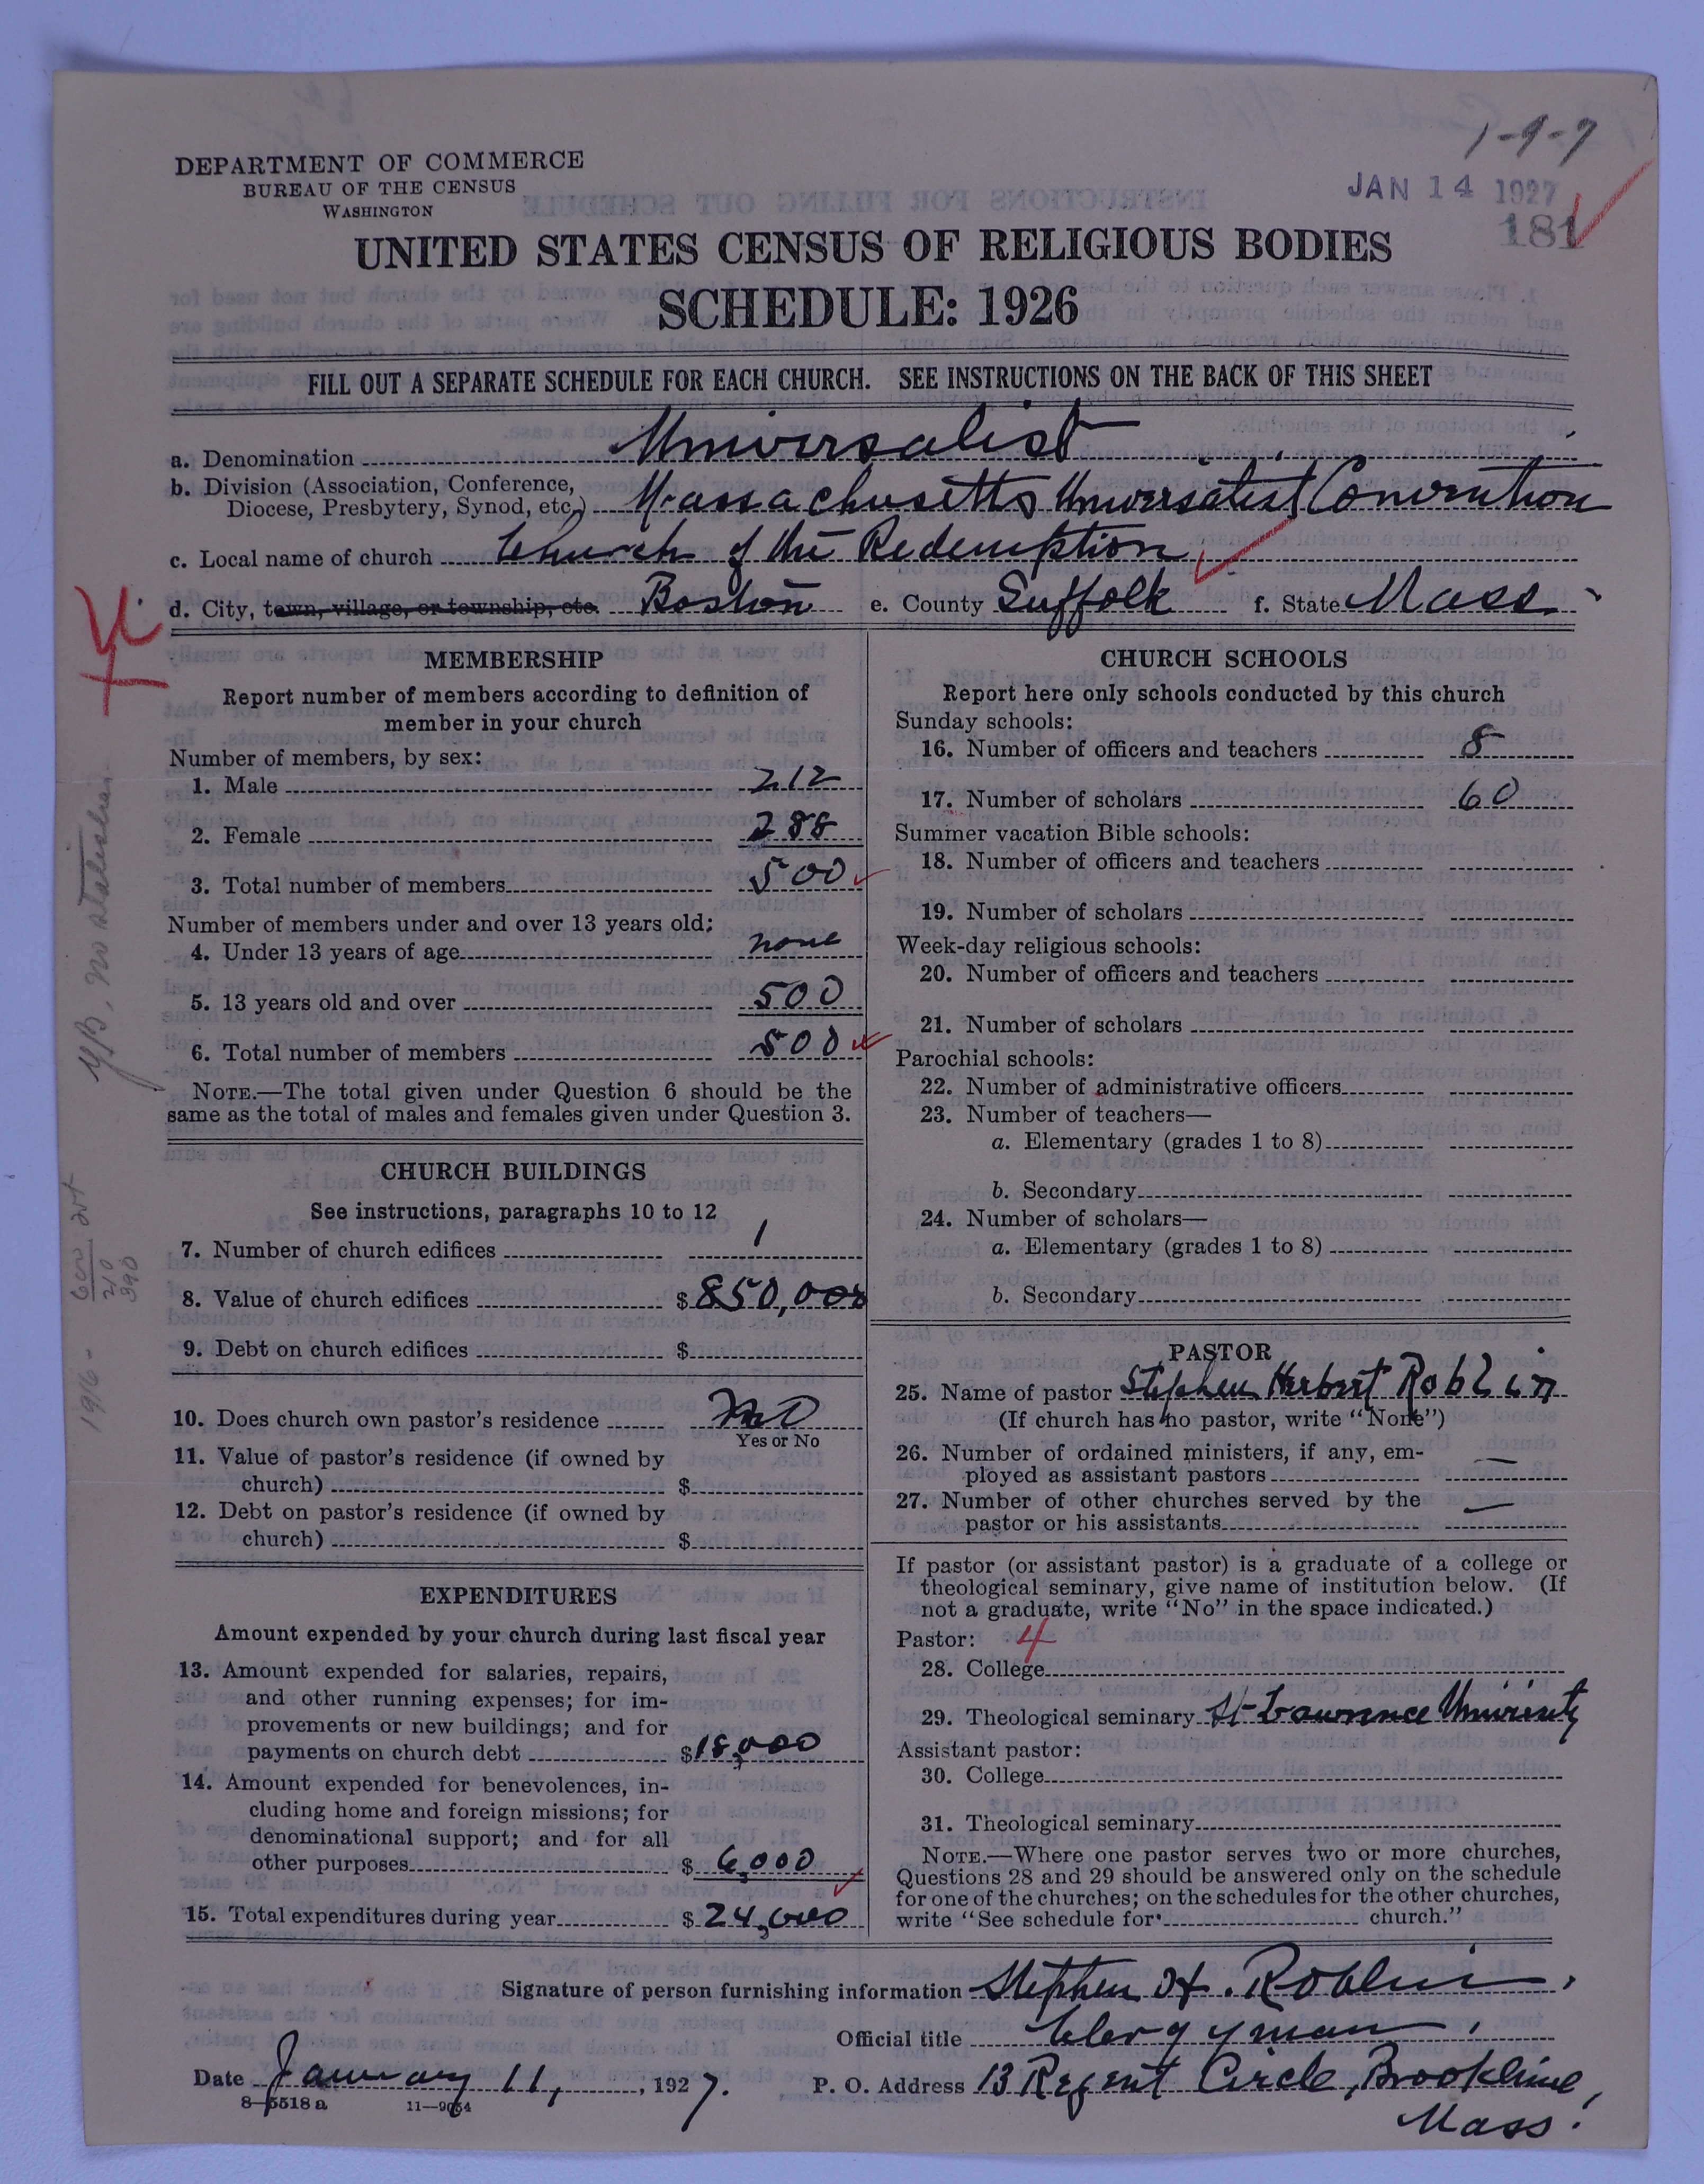 1-9-7
DEPARTMENT OF COMMERCE
BUREAU OF THE CENSUS
WASHINGTON
JAN 14 1927
181
UNITED STATES CENSUS OF RELIGIOUS BODIES
SCHEDULE: 1926
FILL OUT A SEPARATE SCHEDULE FOR EACH CHURCH. SEE INSTRUCTIONS ON THE BACK OF THIS SHEET
a. Denomination Universalist
b. Division (Association, Conference,
Diocese, Presbytery, Synod, etc.) Massachusetts Universalist Convention
c. Local name of church Church of the Redemption
d. City, town, village, or township, etc. Boston e. County Suffolk f. State Mass.
MEMBERSHIP
Report number of members according to definition of
member in your church
Number of members, by sex:
1. Male 212
2. Female 288
3. Total number of members 500
Number of members under and over 13 years old:
4. Under 13 years of age none
5. 13 years old and over 500
6. Total number of members 500
NOTE.—The total given under Question 6 should be the
same as the total of males and females given under Question 3.
CHURCH BUILDINGS
See instructions, paragraphs 10 to 12
7. Number of church edifices 1
8. Value of church edifices $850,000
9. Debt on church edifices $
10. Does church own pastor's residence No
Yes or No
11. Value of pastor's residence (if owned by
church) $
12. Debt on pastor's residence (if owned by
church) $
EXPENDITURES
Amount expended by your church during last fiscal year
13. Amount expended for salaries, repairs,
and other running expenses; for im-
provements or new buildings; and for
payments on church debt $18,000
14. Amount expended for benevolences, in-
cluding home and foreign missions; for
denominational support; and for all
other purposes $6,000
15. Total expenditures during year $24,000
CHURCH SCHOOLS
Report here only schools conducted by this church
Sunday schools:
16. Number of officers and teachers 8
17. Number of scholars 60
Summer vacation Bible schools:
18. Number of officers and teachers
19. Number of scholars
Week-day religious schools:
20. Number of officers and teachers
21. Number of scholars
Parochial schools:
22. Number of administrative officers
23. Number of teachers—
a. Elementary (grades 1 to 8)
b. Secondary
24. Number of scholars—
a. Elementary (grades 1 to 8)
b. Secondary
PASTOR
25. Name of pastor Stephen Herbert Roblin
(If church has no pastor, write "None")
26. Number of ordained ministers, if any, em-
ployed as assistant pastors —
27. Number of other churches served by the
pastor or his assistants —
If pastor (or assistant pastor) is a graduate of a college or
theological seminary, give name of institution below. (If
not a graduate, write "No" in the space indicated.)
Pastor: 4
28. College
29. Theological seminary St Lawrence University
Assistant pastor:
30. College
31. Theological seminary
NOTE.—Where one pastor serves two or more churches,
Questions 28 and 29 should be answered only on the schedule
for one of the churches; on the schedules for the other churches,
write "See schedule for church."
Signature of person furnishing information Stephen H. Roblin.
Official title Clergyman.
Date January 11, 1927. P. O. Address 13 Regent Circle, Brookline,
Mass.
8-5518a 11-9034
1916 -
210
390